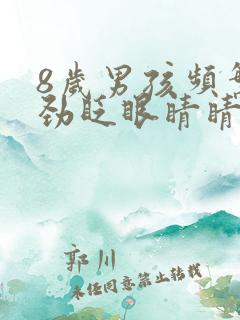 8歲男孩頻
劲眨眼睛睛
郭川
未经同意禁止转载